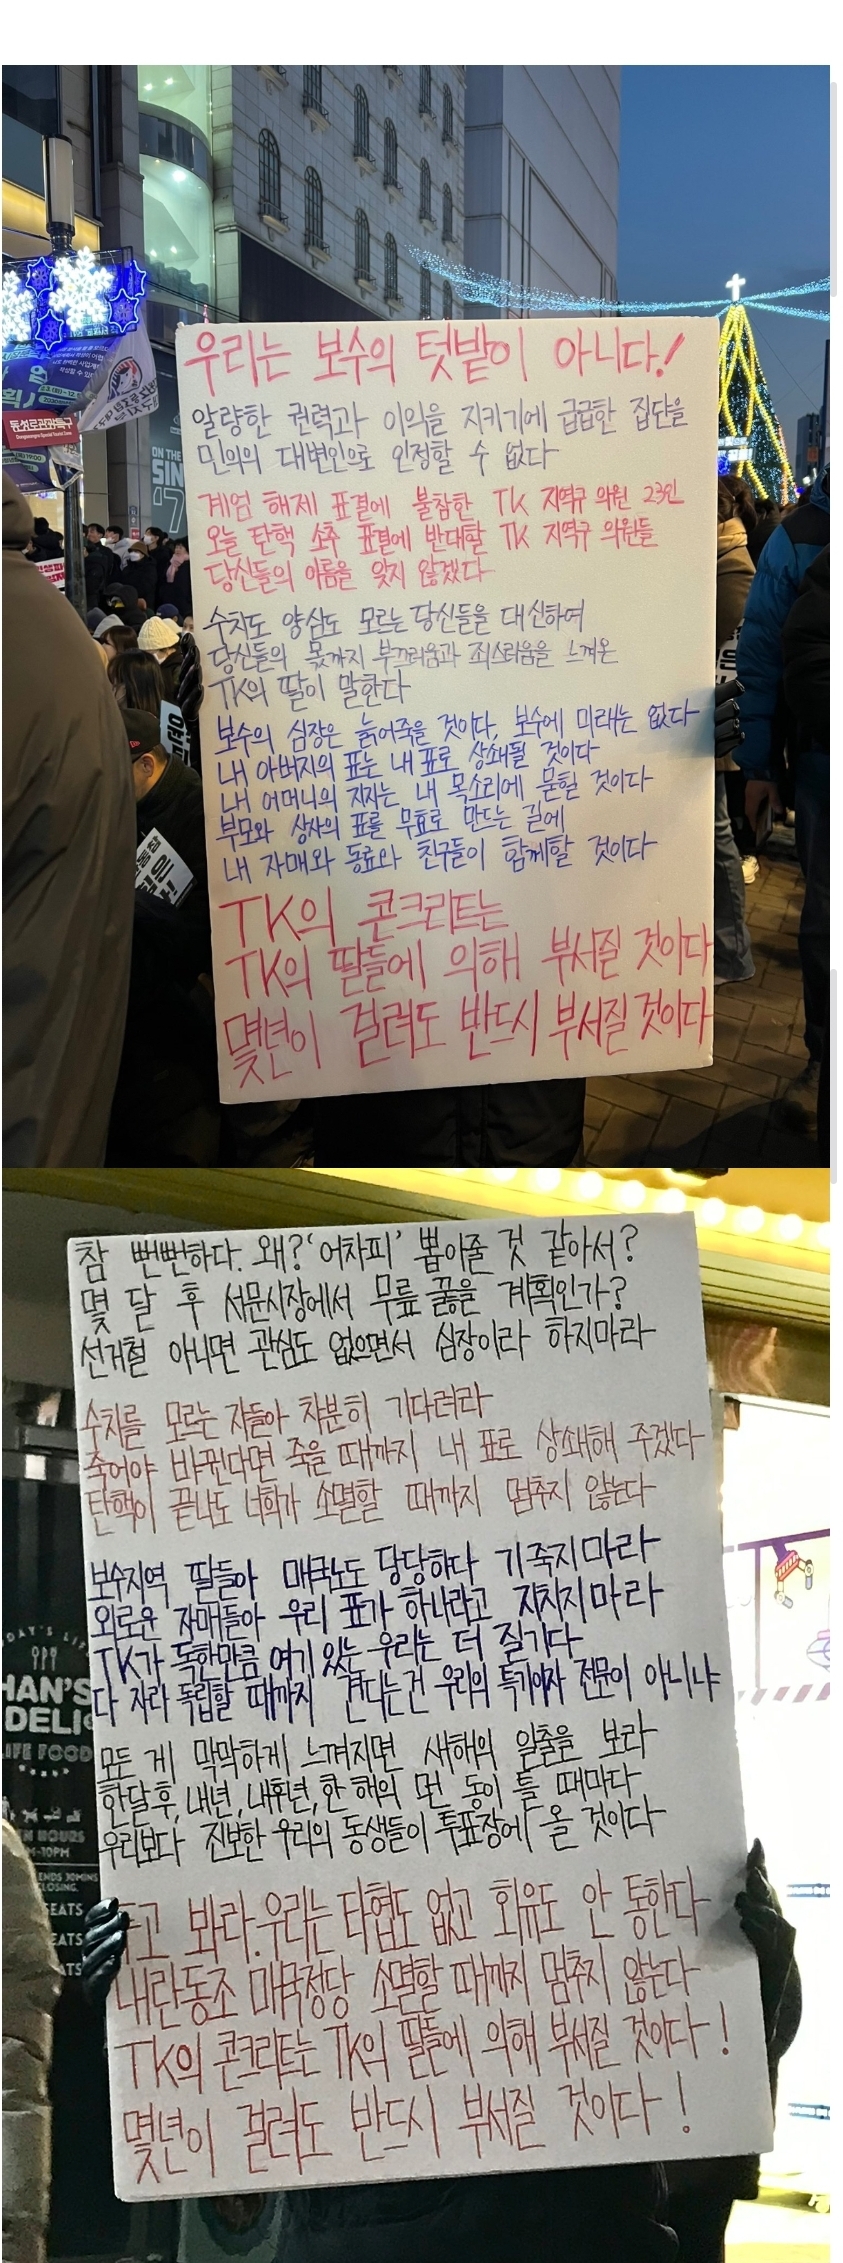 동성로관광특구
ON THE
우리는 보수의 텃밭이 아니다!
알량한 권력과 이익을 지키기에 급급한 집단을
민의의 대변인으로 인정할 수 없다
계엄 해제 표결에 불참한 TK 지역구 의원 23인
오늘 탄핵 소추 표결에 반대할 TK 지역구 의원들
당신들의 이름을 잊지 않겠다
수치도 양심도 모르는 당신들을 대신하여
당신들의 몫까지 부끄러움과 죄스러움을 느껴온
TK의 딸이 말한다
보수의 심장은 늙어죽을 것이다, 보수에 미래는 없다
내 아버지의 표는 내 표로 상쇄될 것이다
내 어머니의 지지는 내 목소리에 묻힐 것이다
부모와 상사의 표를 무효로 만드는 길에
내 자매와 동료와 친구들이 함께할 것이다
TK의 콘크리트는
TK의 딸들에 의해 부서질 것이다
몇년이 걸려도 반드시 부서질 것이다
참 뻔뻔하다. 왜? '어차피' 뽑아줄 것 같아서?
몇 달 후 서문시장에서 무릎 꿇을 계획인가?
선거철 아니면 관심도 없으면서 심장이라 하지마라
수치를 모르는 자들아 차분히 기다려라
죽어야 바뀐다면 죽을 때까지 내 표로 상쇄해 주겠다
탄핵이 끝나도 너희가 소멸할 때까지 멈추지 않는다
보수지역 딸들아 매국노도 당당하다 기죽지마라
외로운 자매들아 우리 표가 하나라고 지치지마라
TK가 독한만큼 여기 있는 우리는 더 질기다
다 자라 독립할 때까지 견디는건 우리의 특기이자 전문이 아니냐
모든 게 막막하게 느껴지면 새해의 일출을 보라
한달 후, 내년, 내후년, 한 해의 먼 동이 틀 때마다
우리보다 진보한 우리의 동생들이 투표장에 올 것이다
봐라. 우리는 타협도 없고 회유도 안 통한다
내란동조 매국정당 소멸할 때까지 멈추지 않는다
TK의 콘크리트는 TK의 딸들에 의해 부서질 것이다!
몇년이 걸려도 반드시 부서질 것이다!
HAN'S
DELI
LIFE FOOD